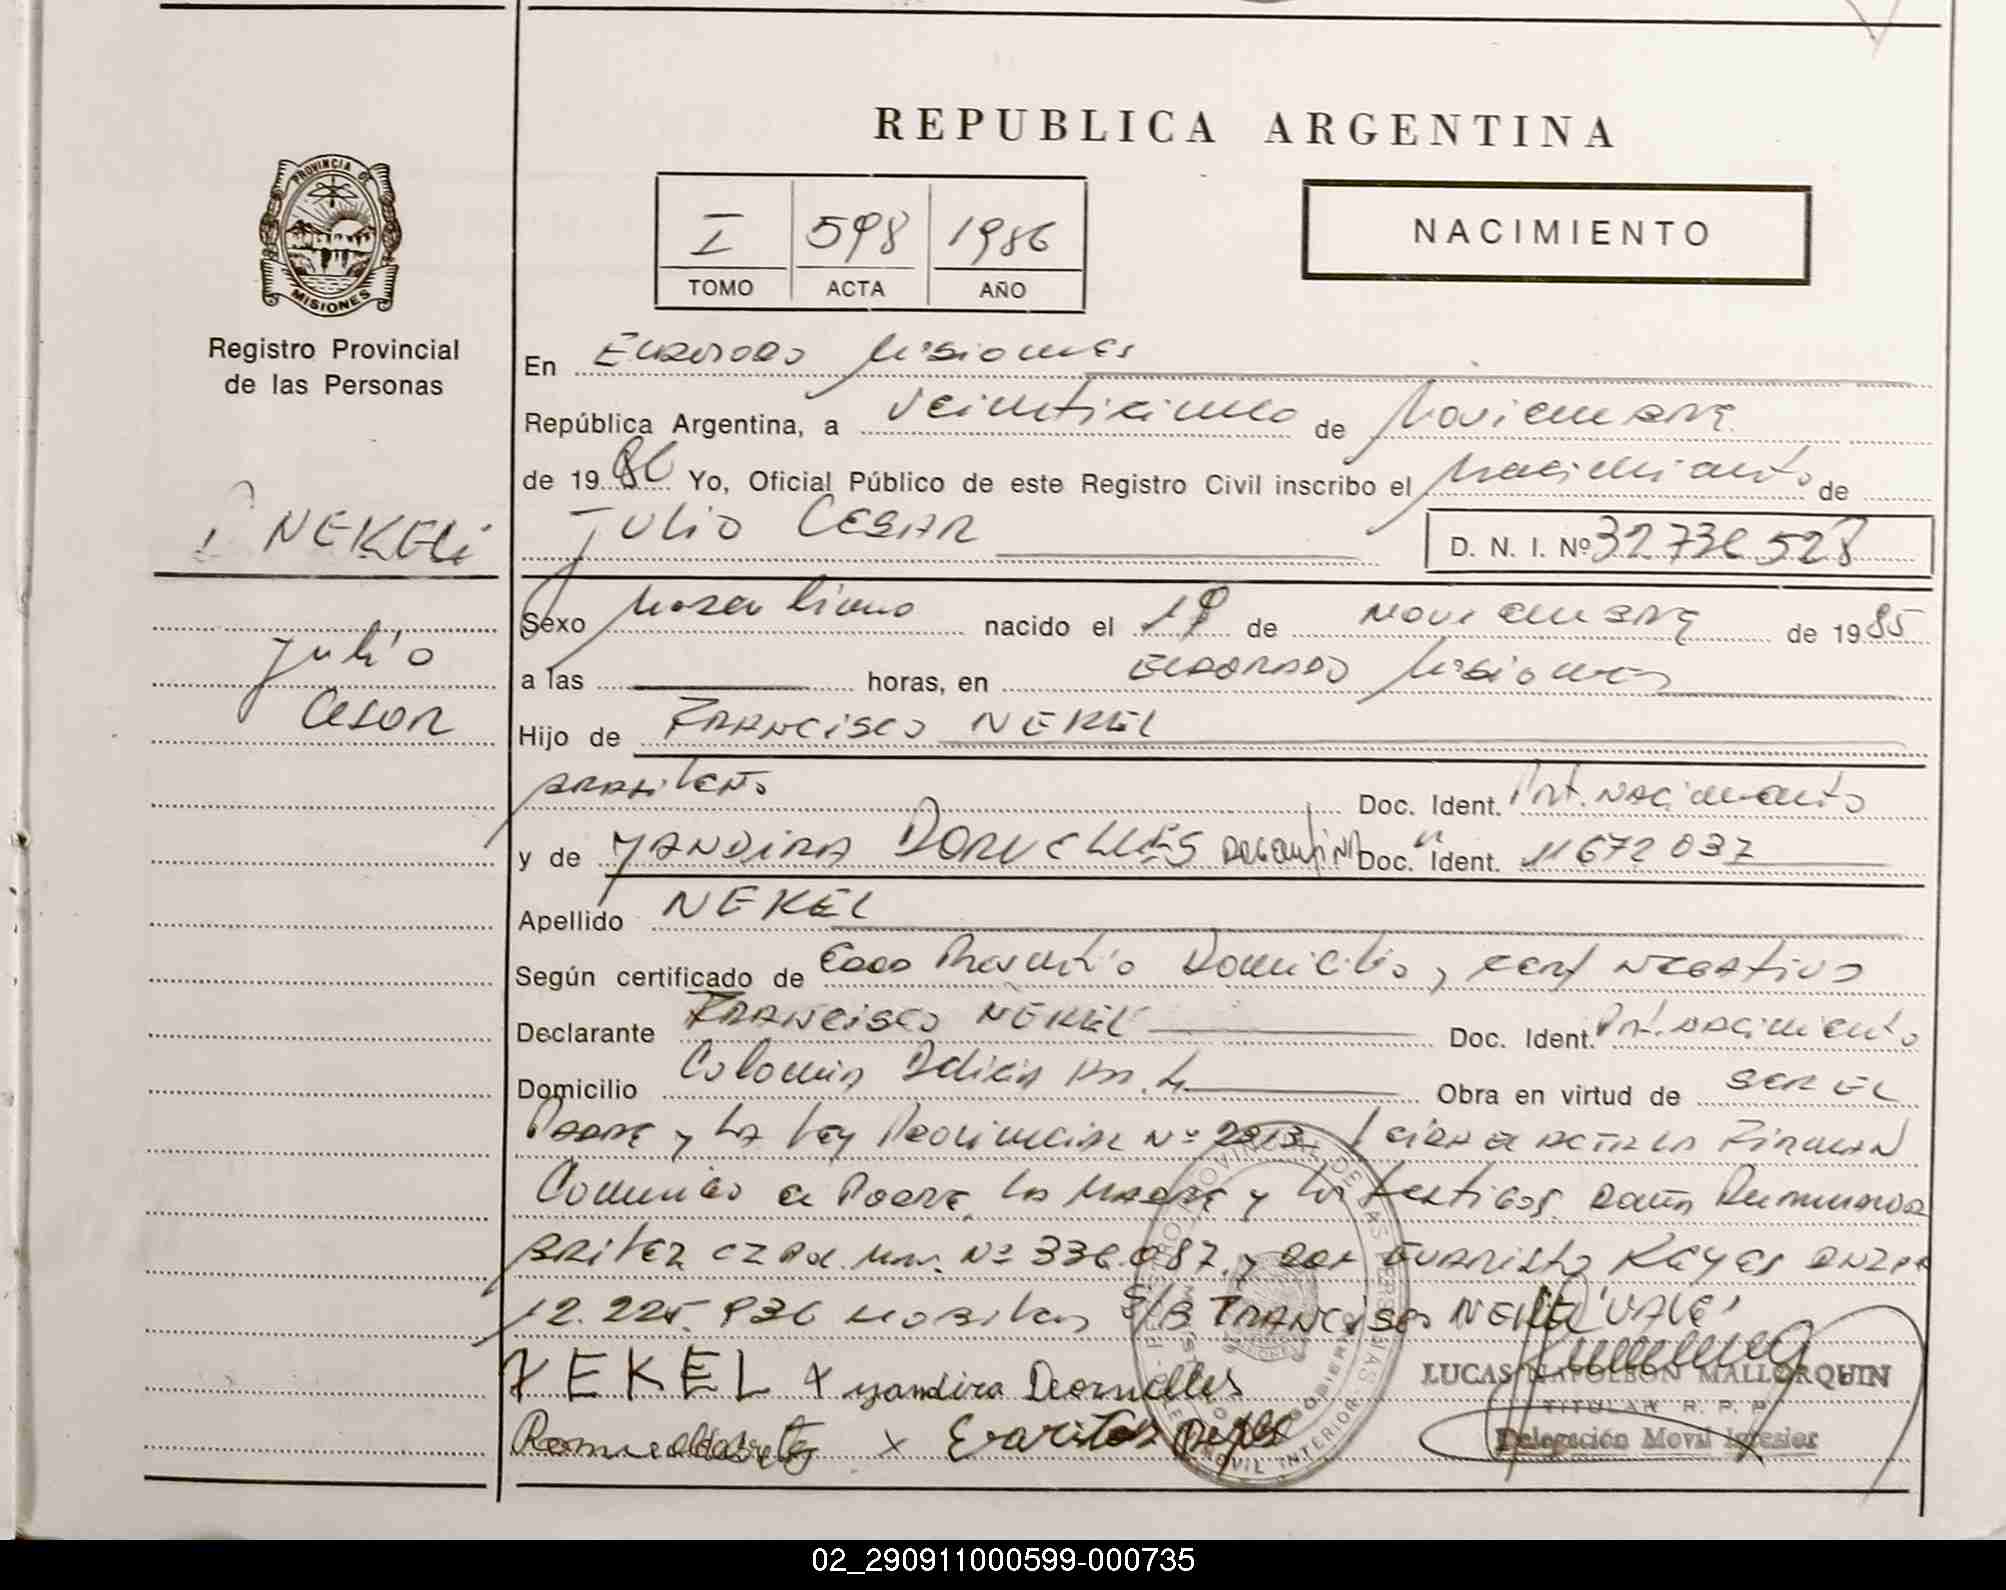 REPUBLICA ARGENTINA
PROVINCIA DE
MISIONES
Registro Provincial
de las Personas
I 598 1986
TOMO ACTA AÑO
NACIMIENTO
En Eldorado Misiones
República Argentina, a veinticinco de Noviembre
de 1986 Yo, Oficial Público de este Registro Civil inscribo el Nacimiento de
JULIO CESAR
D. N. I. Nº 32736528
NEKEL
Julio
Cesar
Sexo Masculino nacido el 19 de Noviembre de 1985
a las horas, en Eldorado Misiones
Hijo de FRANCISCO NEKEL
brasileño Doc. Ident. Part. Nacimiento
y de YANDIRA DORNELLES Argentina Doc. Ident. 11672037
Apellido NEKEL
Según certificado de Domicilio, cert negativo
Declarante FRANCISCO NEKEL Doc. Ident. Part. Nacimiento
Domicilio Colonia Delicia Km. Obra en virtud de SER EL
Padre y la Ley Provincial Nº Leida el acta la FIRMAN
Conmigo el Padre, la Madre y los testigos Doña
Britez Nº 336.087. y Don Evaristo
12.225.936 S/B FRANCISCO NEKEL "VALE"
NEKEL x yandira Deornelles
x
LUCAS NAPOLEON MALLORQUIN
TITULAR R. P. P.
Delegación Movil Interior
02_290911000599-000735